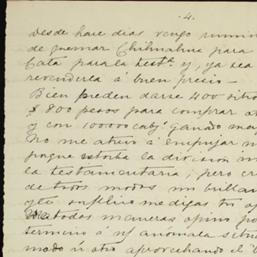 4.
desde hace dias vengo rumin
de quemar Chihuahua para
Cata para la testª y, ya sea
revenderla á buen precio —
Bien pueden darse 400 sitio
$ 800 pesos para comprar
y con 100000 cabzˢ ganado
No me atrevo á empujar
porque estorba la division
la testamentaria; pero
de todos modos
y te suplico me digas tu op
De todas maneras opino po
termino á
modo ú otro aprovechando el